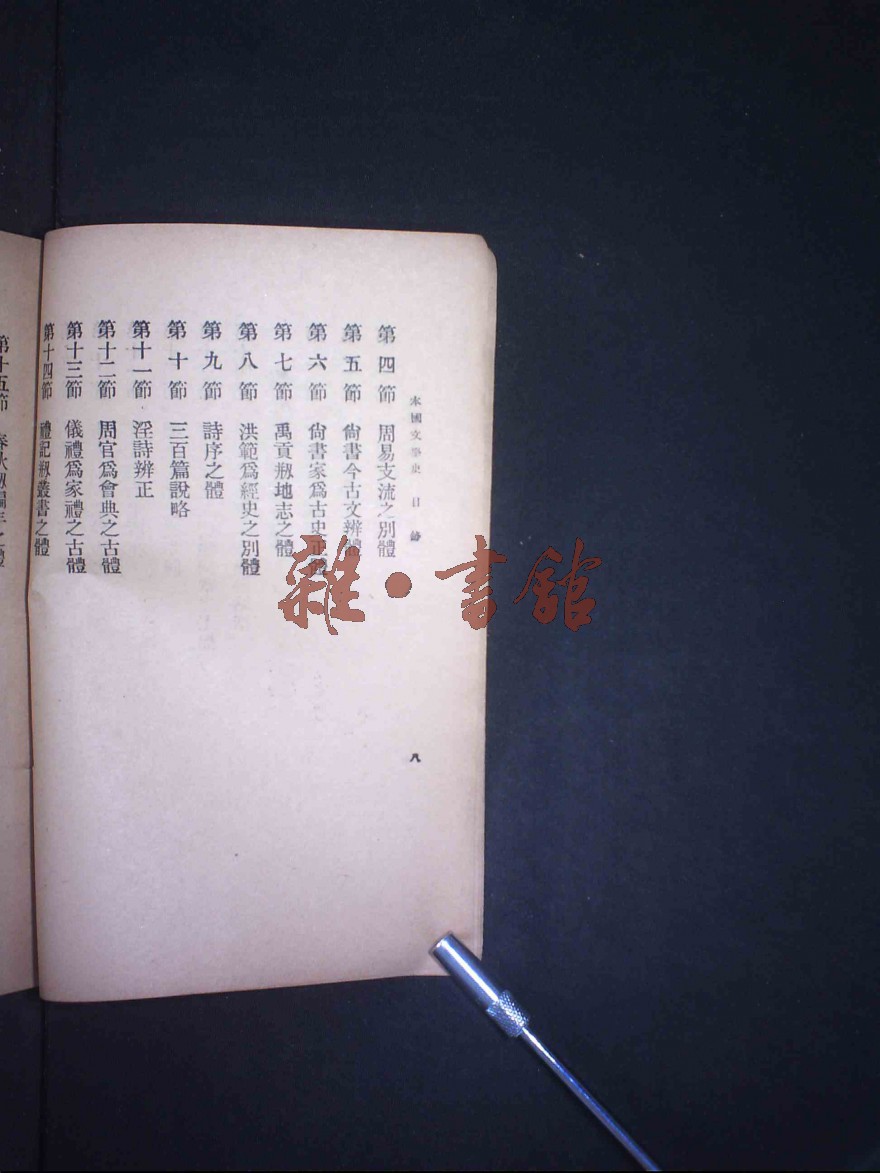 本國文學史 目錄
八
第四節 周易支流之別體
第五節 尙書今古文辨體
第六節 尙書家爲古史正體
第七節 禹貢刱地志之體
第八節 洪範爲經史之別體
第九節 詩序之體
第十節 三百篇說略
第十一節 淫詩辨正
第十二節 周官爲會典之古體
第十三節 儀禮爲家禮之古體
第十四節 禮記刱叢書之體
第十五節 春秋刱編年之體
雜·書館